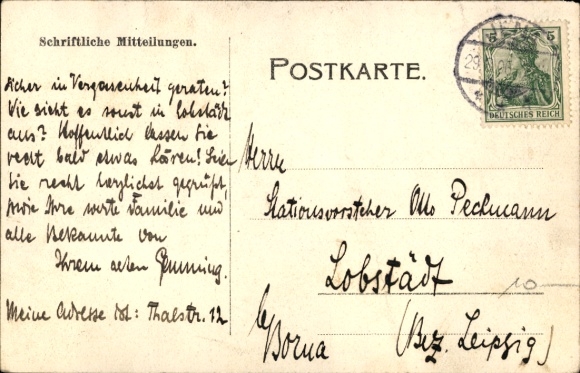 Schriftliche Mitteilungen.
sicher in Vergessenheit geraten?
Wie sieht es sonst in Lobstädt
aus? Hoffentlich lassen Sie
recht bald etwas hören! Seien
Sie recht herzlichst gegrüßt,
sowie Ihre werte Familie und
alle Bekannte von
Ihrem alten
Meine Adresse ist: Thalstr. 12
POSTKARTE.
Herrn
Stationsvorsteher Otto Pechmann
Lobstädt
b/
Borna (Bez. Leipzig)
10
5 5
DEUTSCHES REICH
29